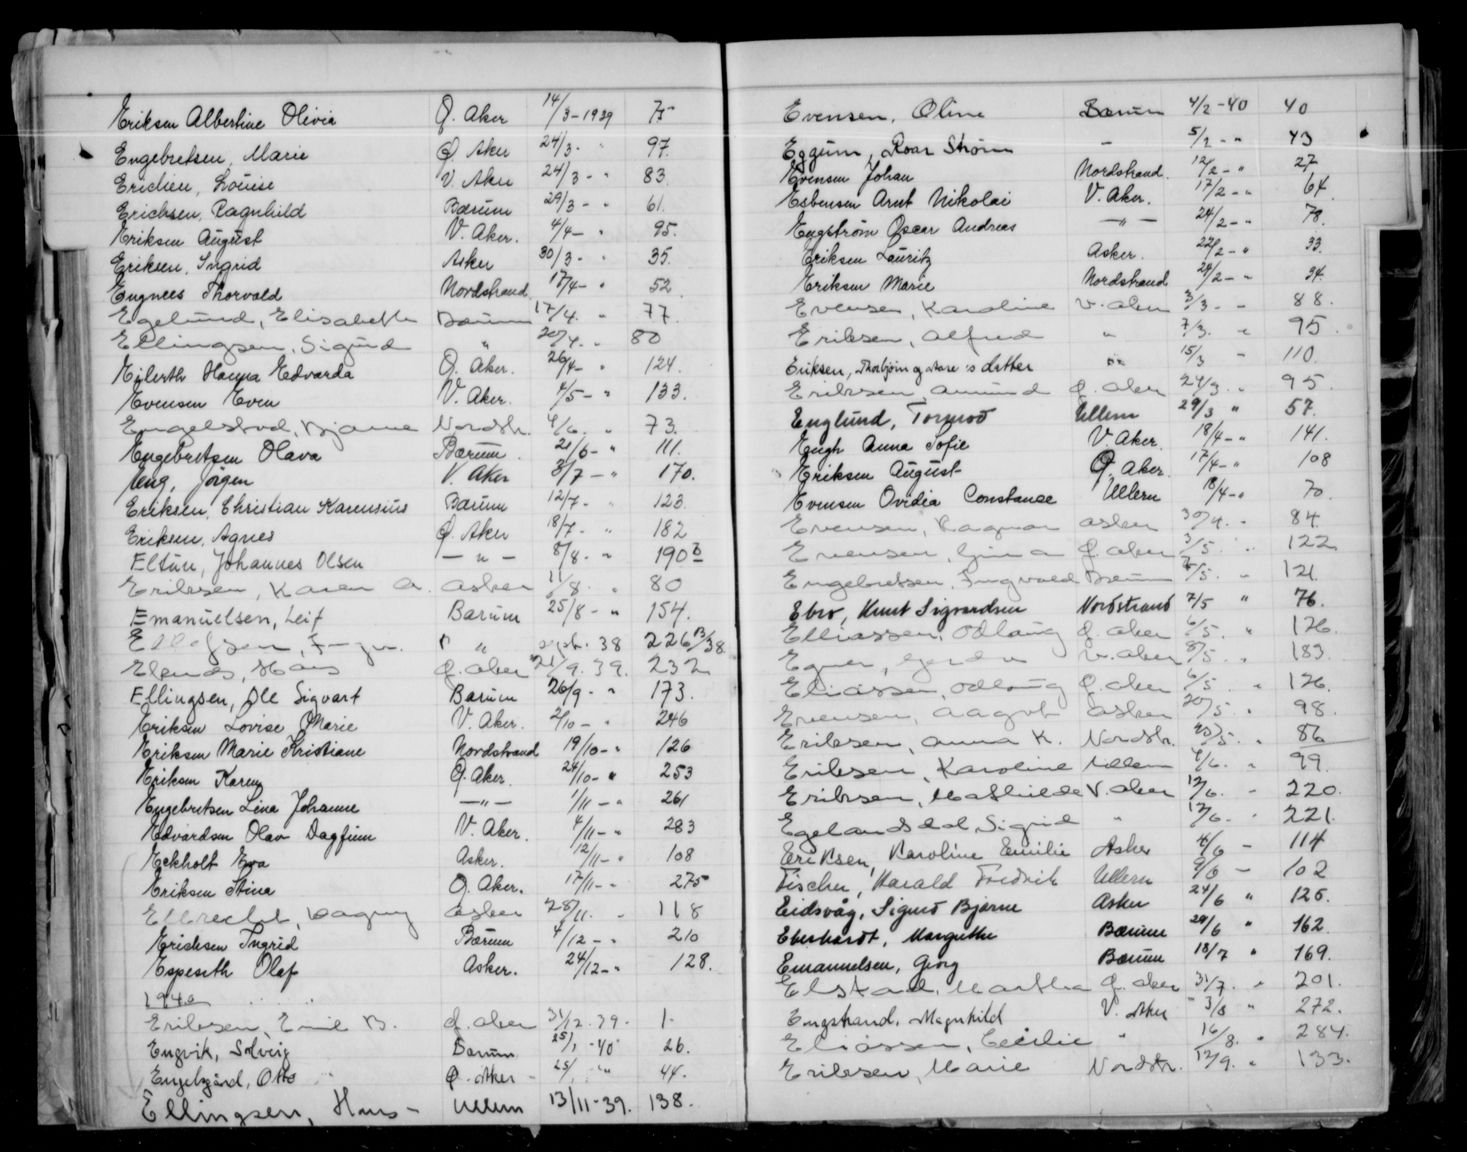 Eriksen Albertine Olivia Ø. Aker 14/3-1939 75
Engebretsen, Marie Ø Aker 24/3- " 97.
Erichsen, Louise V. Aker 24/3- " 83.
Erichsen, Ragnhild Bærum 29/3- " 61.
Eriksen August V. Aker. 4/4- " 95.
Eriksen, Ingrid Asker 30/3- " 35.
Engnees Thorvald Nordstrand 17/4- " 52
Egelund, Elisabeth Bærum 17/4. " 77.
Ellingsen, Sigurd " 20/4. " 80
Eilerth Hanna Edvarda Ø. Aker. 26/4- " 124.
Evensen Even V. Aker. 4/5- " 133.
Engelstad, Bjarne Nordstr. 4/6. " 73.
Engebretsen Olava Bærum. 21/6- " 111.
Eng, Jörgen V. Aker 3/7- " 170.
Eriksen, Christian Karensius Bærum 12/7- " 123
Eriksen, Agnes Ø. Aker 18/7- " 182
Eltun, Johannes Olsen — " — 8/8. " 190 b
Eriksen, Karen A. Asker 11/8. " 80
Emanuelsen, Leif Bærum 25/8- " 154.
" " sept. 38 226 13/38
Elends, Hans Ø. Aker 21/9. 39. 232
Ellingsen, Ole Sigvart Bærum 26/9- " 173.
Eriksen Lovise Marie V. Aker. 2/10- " 246
Eriksen Marie Kristiane Nordstrand 19/10- " 126
Eriksen Karen Ø. Aker. 24/10- " 253
Engebretsen Lina Johanne — " — 1/11- " 261
Edvardsen Olav Dagfinn V. Aker. 4/11- " 283
Eckholt Ewa Asker. 12/11- " 108
Eriksen Stina Ø. Aker. 17/11- " 275
Elbrecht, Dagny Asker 28/11. " 118
Erichsen Ingrid Bærum 4/12- " 210
Espeseth Olaf Asker. 24/12- " 128.
1940
Eriksen, Emil B. Ø. Aker 31/12. 39. 1.
Engvik, Solveig Bærum. 25/1-40 26.
Engelsgård, Otto Ø. Aker - 25/1 " 44.
Ellingsen, Hans - Ullern 13/11-39. 138.
Evensen, Oline Bærum 4/2-40 40
Eggum, Roar Strøm — 5/2- " 43
Evensen Johan Nordstrand. 12/2- " 27
Esbensen Arnt Nikolai V. Aker. 17/2- " 64.
Engstrøm Oscar Andreas — " — 24/2- " 78.
Eriksen Lauritz Asker. 22/2- " 33.
Eriksen Marie Nordstrand 24/2- " 34.
Evensen, Karoline V. Aker 3/3. " 88.
Eriksen, Alfred " 7/3. " 95.
Eriksen, Thorbjørn og Aase's datter " 15/3 " 110.
Eriksen, Amund Ø. Aker 24/3. " 95.
Englund, Tormod Ullern 29/3 " 57.
Engh Anna Sofie V. Aker. 18/4- " 141.
Eriksen August Ø. Aker. 17/4- " 108
Evensen Ovidia Constance Ullern 18/4- " 70.
Evensen, Ragnar Asker 30/4. " 84.
Evensen, Gina Ø. Aker 3/5. " 122
Engebretsen, Ingvald Bærum /5. " 121.
Ebro, Knut Sigvardsen Nordstrand 7/5 " 76.
Elliassen, Odlaug Ø. Aker 6/5. " 126.
Egner, Gerda V. Aker 8/5. " 183.
Eliassen, Odlaug Ø. Aker 6/5. " 126.
Evensen, Aagot Asker 20/5. " 98.
Eriksen, Anna K. Nordstr. 23/5. " 86
Eriksen, Karoline Ullern 4/6. " 99.
Eriksen, Mathilde V. Aker 12/6. " 220.
Egelandsdal, Sigrid " 12/6. " 221.
Eriksen, Karoline Emilie Asker 4/6 - 114
Fischer, Harald Fredrik Ullern 9/6 - 102
Eidsvåg, Sigurd Bjarne Asker 24/6 " 125.
Eberhardt, Margrethe Bærum 29/6 " 162.
Emanuelsen, Georg Bærum 18/7 " 169.
Elstad, Martha Ø. Aker 31/7. " 201.
Engstrand, Magnhild V. Aker 3/8 " 272.
Eliassen, Cecilie " 16/8. " 284.
Eriksen, Marie Nordstr. 12/9. " 133.